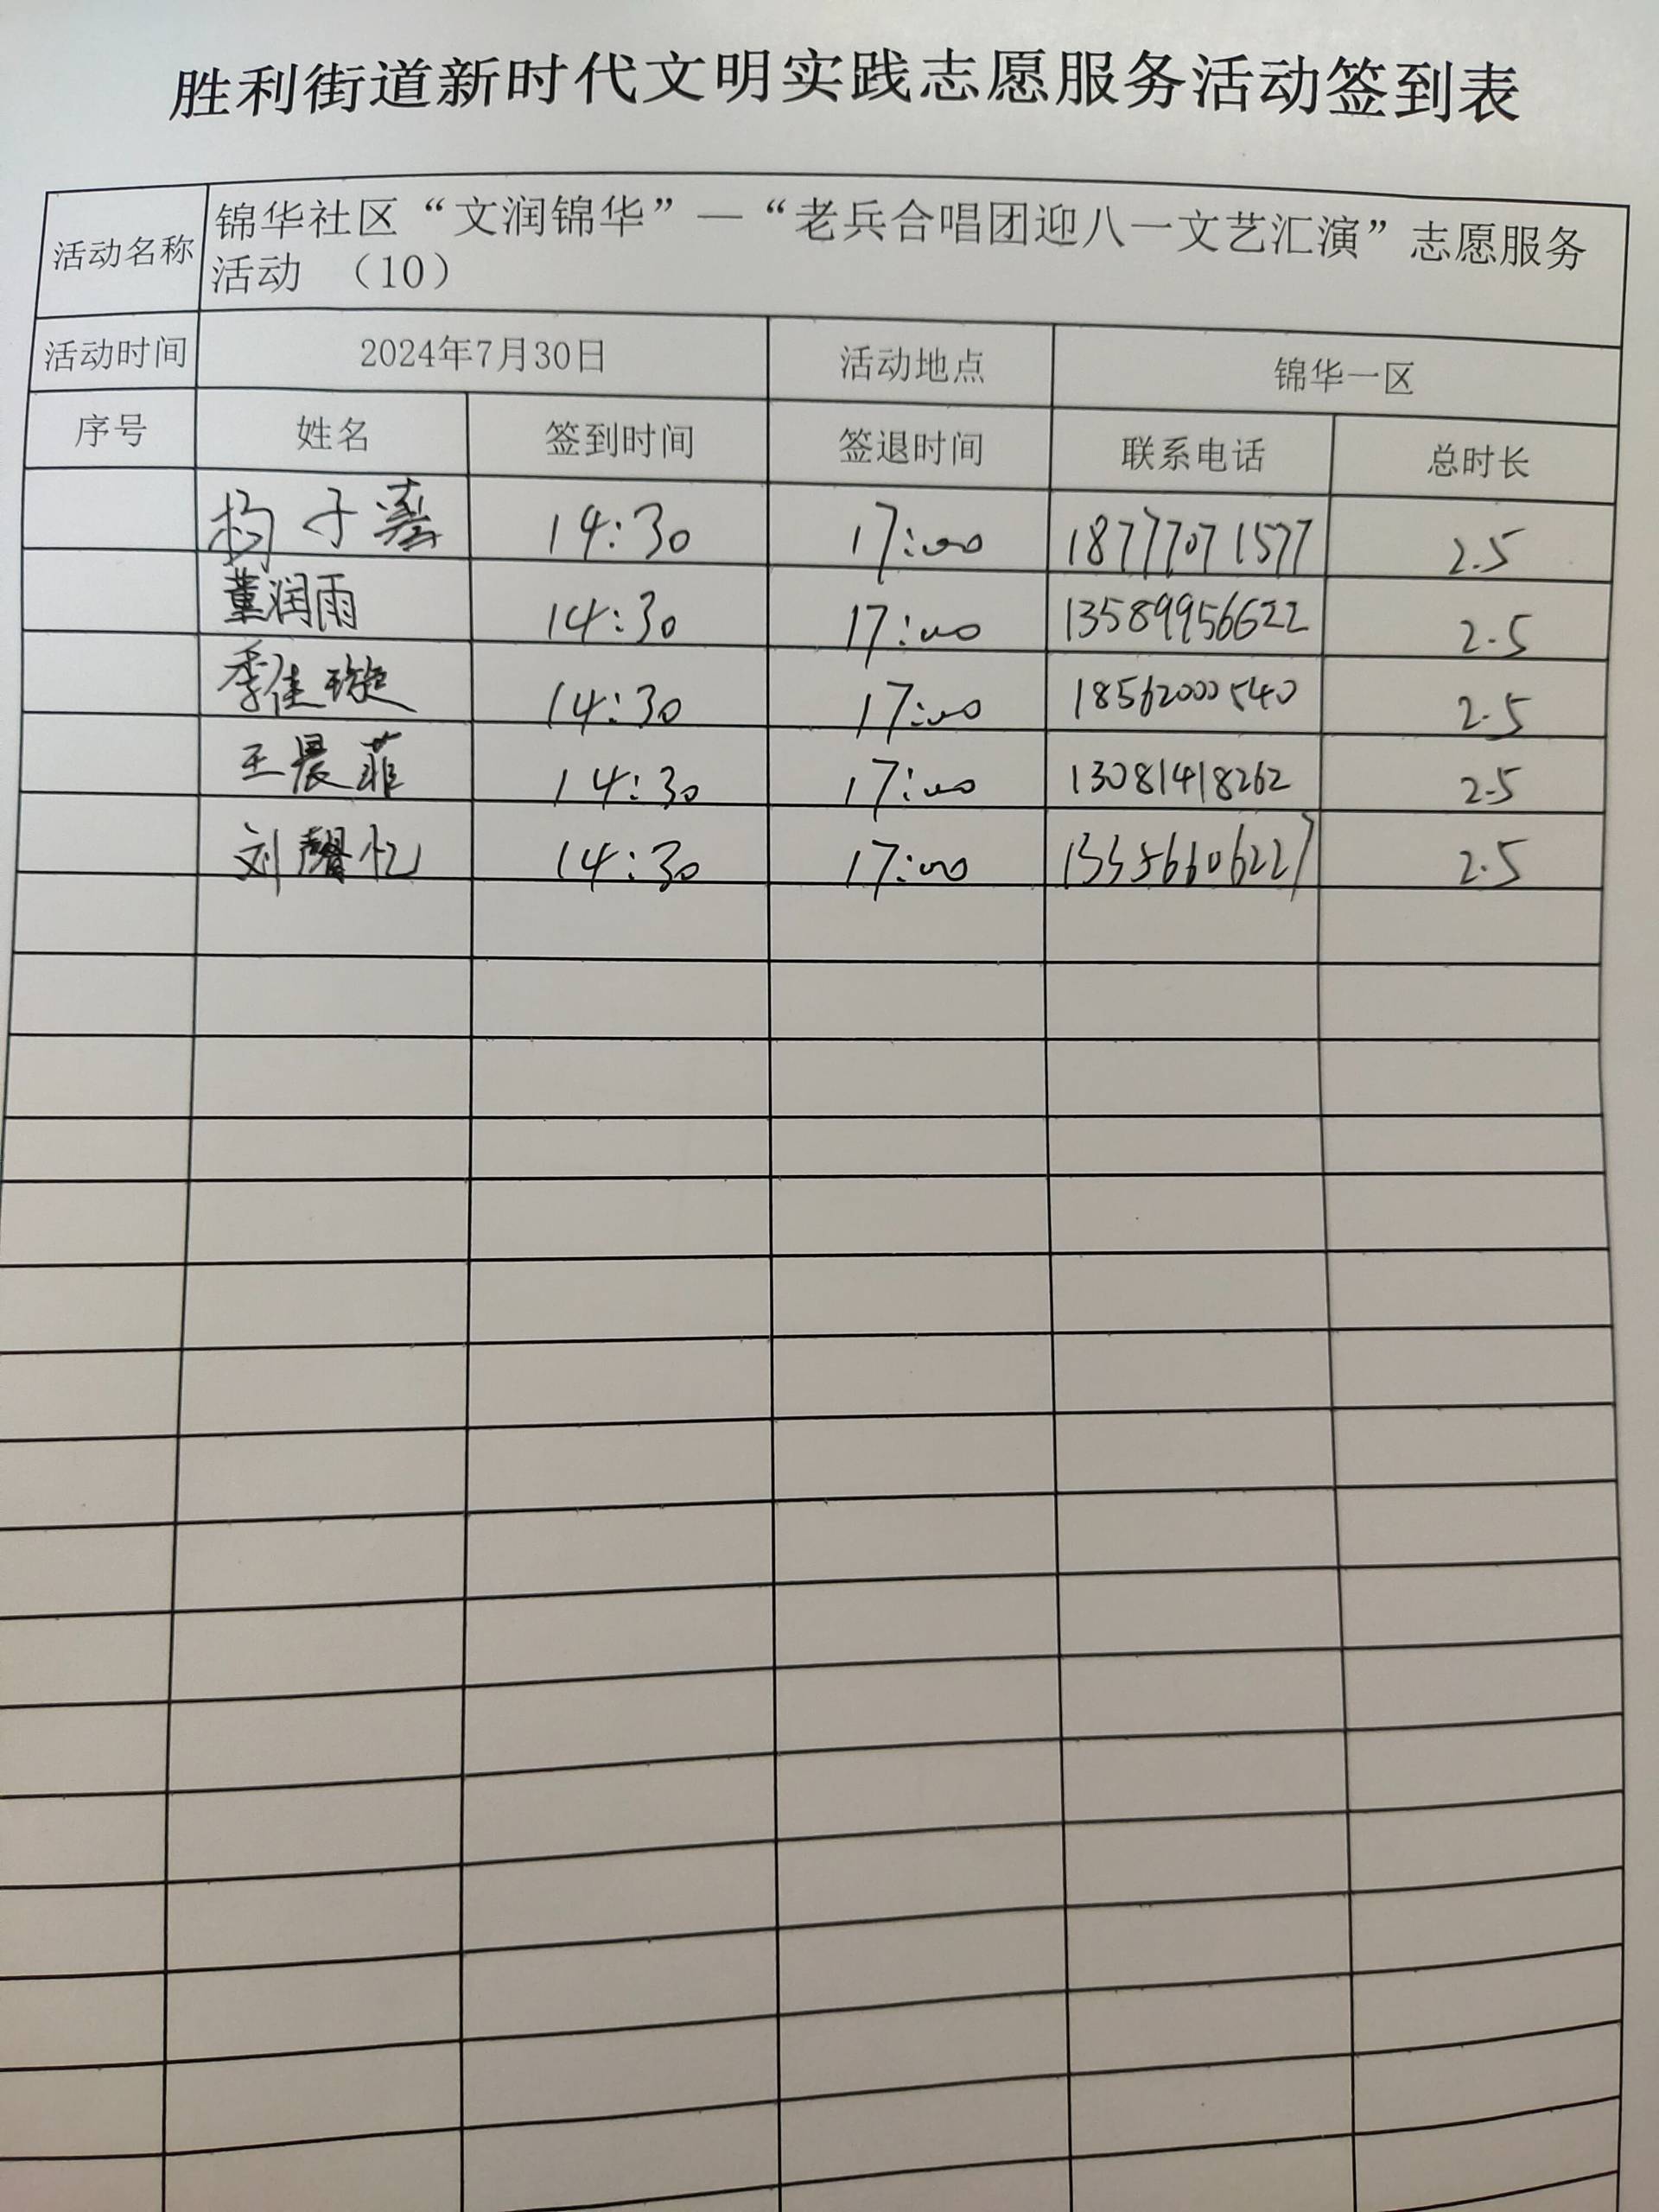 胜利街道新时代文明实践志愿服务活动签到表
活动名称 锦华社区“文润锦华”—“老兵合唱团迎八一文艺汇演”志愿服务
活动 （10）
活动时间 2024年7月30日 活动地点 锦华一区
序号 姓名 签到时间 签退时间 联系电话 总时长
杨子 14:30 17:00 18777071577 2.5
董润雨 14:30 17:00 13589956622 2.5
季佳璇 14:30 17:00 18562000540 2.5
王晨菲 14:30 17:00 13081418262 2.5
刘馨忆 14:30 17:00 13356606227 2.5